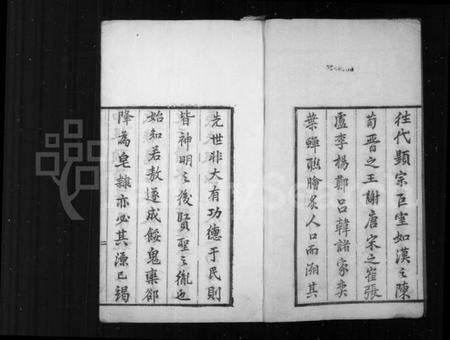 往代顯宗巨室如漢之陳
荀晉之王謝唐宋之崔張
盧李楊鄭呂韓諸家奕
葉蟬聯膾炙人口而溯其
先世非大有功德于民則
皆神明之後賢聖之裔也
始知若敖遂成餒鬼欒郤
降為皂隸亦必其源已竭